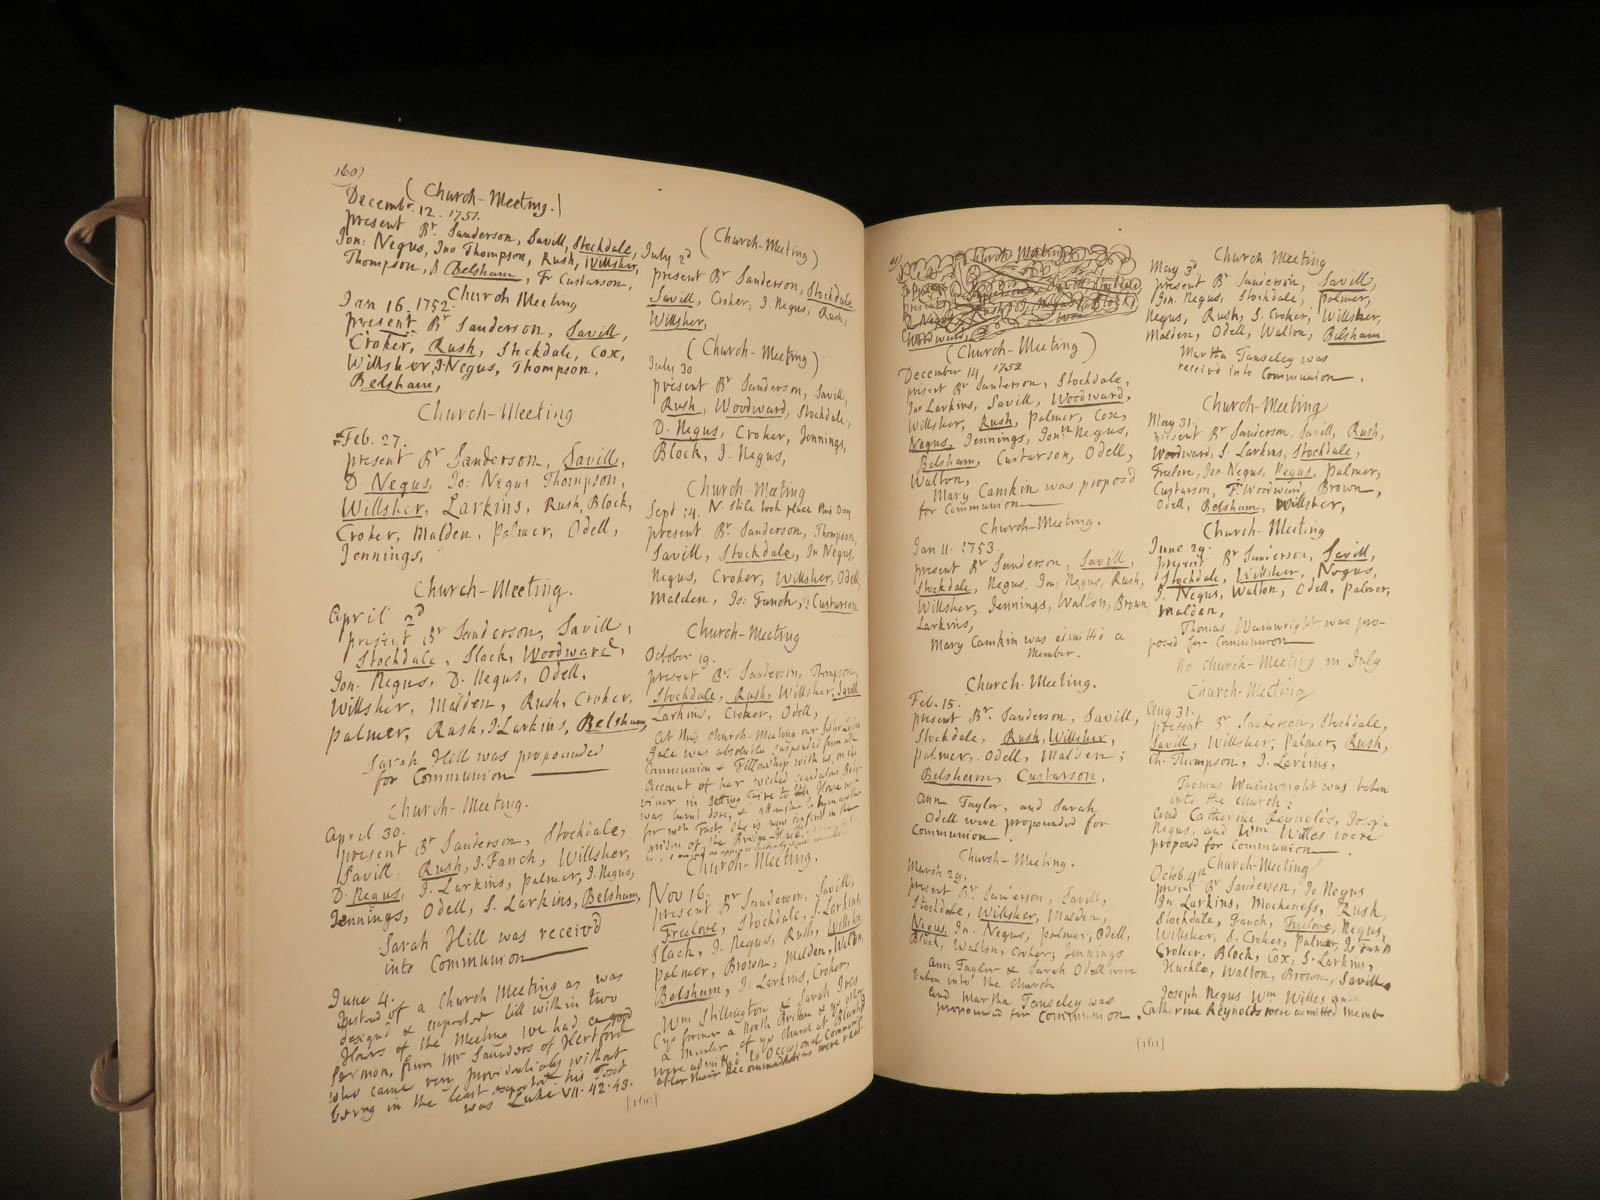 160)
(Church-Meeting.)
Decembr. 12. 1751.
present Br. Sanderson, Savill, Stockdale,
Jon: Negus, Jno Thompson, Rush, Willsher,
Thompson, Belsham, Fr Custarson,
Church Meeting
Jan 16. 1752.
present Br Sanderson, Savill,
Croker, Rush, Stockdale, Cox,
Willsher, J. Negus, Thompson.
Belsham,
Church-Meeting
Feb. 27.
present Br Sanderson, Savill,
D. Negus, Jo: Negus Thompson,
Willsher, Larkins, Rush, Block,
Croker, Malden, Palmer, Odell,
Jennings,
Church-Meeting.
April 2d
present Br Sanderson, Savill,
Stockdale, Slack, Woodward,
Jon. Negus, D. Negus, Odell,
Willsher, Malden, Rush, Croker,
palmer, Rush, J. Larkins, Belsham,
Sarah Hill was propounded
for Communion
Church-Meeting.
April 30.
present Br Sanderson, Stockdale,
Savill, Rush, J. Fanch, Willsher,
D. Negus, J. Larkins, palmer, J. Negus,
Jennings, Odell, S. Larkins, Belsham,
Sarah Hill was receiv'd
into Communion
June 4.
Instead of a Church Meeting as was
design'd & expected till within two
Hours of the Meeting we had a good
Sermon, from Mr Saunders of Hertford
who came very providentialy without
being in the least expected his Text
was Luke VII. 42.43.
(Church-Meeting)
July 2d
present Br Sanderson, Stockdale,
Savill, Croker, J. Negus, Rush,
Willsher,
(Church-Meeting)
July 30.
present Br Sanderson, Savill,
Rush, Woodward, Stockdale,
D. Negus, Croker, Jennings,
Block, J. Negus,
Church Meeting
Sept 14. N. stile took place this Day
present Br. Sanderson, Thompson,
Savill, Stockdale, Jn Negus,
Negus, Croker, Willsher, Odell,
Malden, Js: Fanch, Custarson
Church-Meeting
October 19.
present Br. Sanderson, Thompson,
Stockdale, Rush, Willsher, Savill
Larkins, Croker, Odell,
At this Church-Meeting our Sister
Gale was absolutely suspended from
Communion & Fellowship with us, on the
account of her wicked scandalous Beha-
viour in setting Fire to House
was burnt down, &
for wch Facts she is now confin'd in the
prison of the Bridge-
Church-Meeting.
Nov 16.
present Br Sanderson, Savill,
Freelove, Stockdale, J. Larkins,
Slack, J. Negus, Rush, Willsher,
palmer, Brown, Malden, Walton,
Belsham, J. Larkins, Croker,
Wm Stillington & Sarah Ives
(ye former a North Britan & ye other
a Member of ye Church at
were admitted to Occasional Communion
after their Recommendations were read.
[160]
Church Meeting
Savill, Stockdale
Woodward,
(Church-Meeting)
December 14, 1752
present Br Sanderson, Stockdale,
Jno Larkins, Savill, Woodward,
Willsher, Rush, palmer, Cox,
Negus, Jennings, Jonn Negus,
Belsham, Custarson, Odell,
Walton,
Mary Camkin was propos'd
for Communion
Church-Meeting.
Jan 11. 1753.
present Br Sanderson, Savill,
Stockdale, Negus, Jn: Negus, Rush,
Willsher, Jennings, Walton, Brown
Larkins,
Mary Camkin was admitted a
Member.
Church-Meeting.
Feb. 15.
present Br. Sanderson, Savill,
Stockdale, Rush, Willsher,
palmer, Odell, Malden;
Belsham, Custarson,
Ann Taylor, and Sarah
Odell were propounded for
Communion
Church-Meeting.
March 29.
present Br Sanderson, Savill,
Stockdale, Willsher, Malden,
Negus, Jn. Negus, palmer, Odell,
Block, Walton, Croker, Jennings
Ann Taylor & Sarah Odell were
taken into the Church
and Martha Tanseley was
propounded for Communion.
Church Meeting
May 3d
present Br Sanderson, Savill,
Jon. Negus, Stockdale, palmer,
Negus, Rush, S. Croker, Willsher,
Malden, Odell, Walton, Belsham
Martha Tanseley was
receiv'd into Communion.
Church-Meeting
May 31.
present Br Sanderson, Savill, Rush,
Woodward, J. Larkins, Stockdale,
Freelove, Jon. Negus, Negus, palmer,
Custarson, F. Woodward, Brown,
Odell, Belsham, Willsher,
Church-Meeting
June 29.
present Br Sanderson, Savill,
Stockdale, Willsher, Negus,
J. Negus, Walton, Odell, Palmer,
Malden,
Thomas Wainwright was pro-
posed for Communion
No Church-Meeting in July
Church-Meeting
Aug 31.
present Br Sanderson, Stockdale,
Savill, Willsher, Palmer, Rush,
Th. Thompson, J. Larkins,
Thomas Wainwright was taken
into the Church;
and Catherine Reynolds, Joseph
Negus, and Wm Willes were
propos'd for Communion.
Church-Meeting
Octob. 4th
present Br Sanderson, Jo Negus
Jn Larkins, Mackeness, Rush,
Stockdale, Fanch, Freelove, Negus,
Willsher, S. Croker, Palmer,
Croker, Block, Cox, S. Larkins,
Huckle, Walton, Brown, Savill,
Joseph Negus Wm Willes and
Catherine Reynolds were admitted memb
[161]